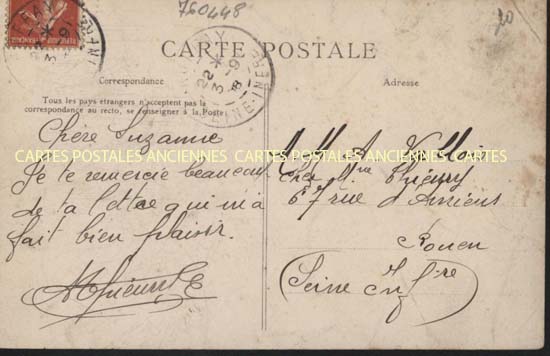 760448
20
CARTE POSTALE
Correspondance
Adresse
Tous les pays étrangers n'acceptent pas la
correspondance au recto, se renseigner à la Poste
CARTES POSTALES ANCIENNES CARTES POSTALES ANCIENNES
22 * 3 - 9
SEINE-INFRE
Chère Suzanne
Je te remercie beaucou
de ta lettre qui m'a
fait bien plaisir.
Mlle
Chez Mme Thieury
67 rue d'Amiens
Rouen
Seine Infre